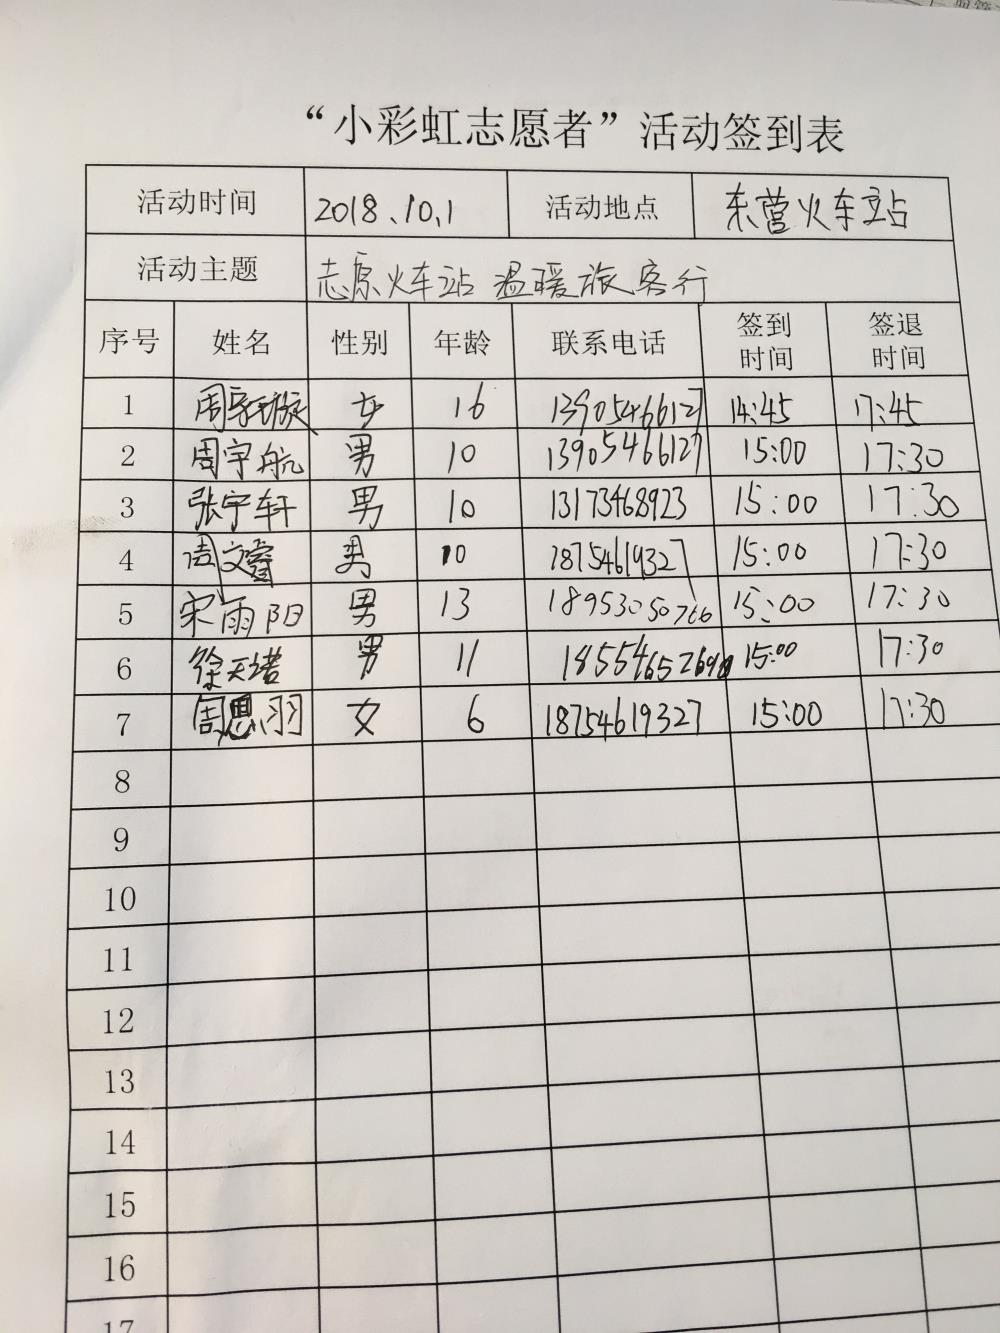 “小彩虹志愿者”活动签到表
活动时间 2018.10.1 活动地点 东营火车站
活动主题 志原火车站 温暖旅客行
序号 姓名 性别 年龄 联系电话 签到时间 签退时间
1 周 女 16 13905466127 14:45 17:45
2 周宇航 男 10 13905466127 15:00 17:30
3 张宇轩 男 10 13173468923 15:00 17:30
4 周文睿 男 10 18754619327 15:00 17:30
5 宋雨阳 男 13 18953050766 15:00 17:30
6 徐天诺 男 11 15:00 17:30
7 周思羽 女 6 18754619327 15:00 17:30
8
9
10
11
12
13
14
15
16
17